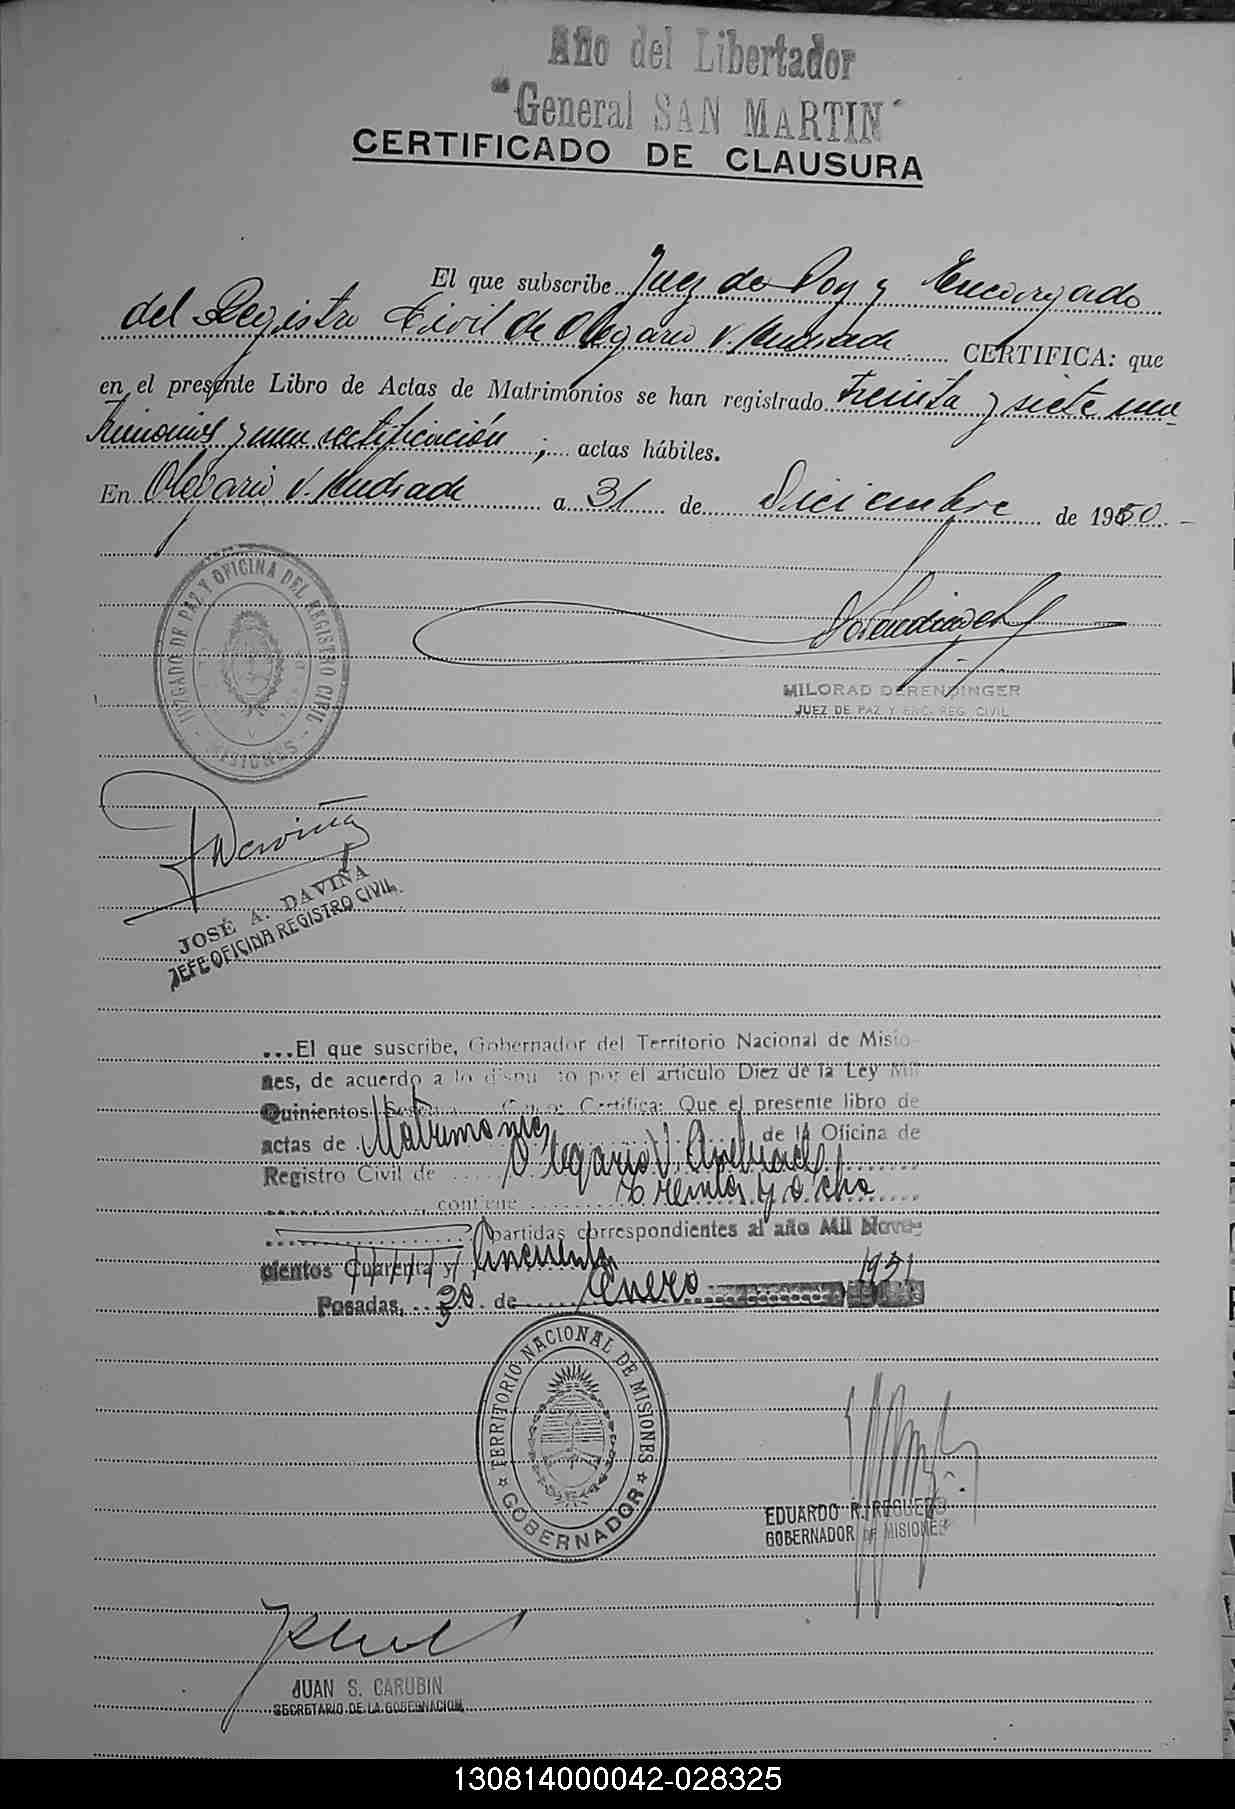 Año del Libertador
"General SAN MARTIN"
CERTIFICADO DE CLAUSURA
El que subscribe Juez de Paz y Encargado
del Registro Civil de Olegario V. Andrade CERTIFICA: que
en el presente Libro de Actas de Matrimonios se han registrado Treinta y siete ma-
trimonios y una rectificación ; actas hábiles.
En Olegario V. Andrade a 31 de Diciembre de 1950 -
JUZGADO DE PAZ Y OFICINA DEL REGISTRO CIVIL
- MISIONES -
MILORAD DERENDINGER
JUEZ DE PAZ Y ENC. REG. CIVIL
JDaviña
JOSÉ A. DAVIÑA
JEFE OFICINA REGISTRO CIVIL
...El que suscribe, Gobernador del Territorio Nacional de Misio-
nes, de acuerdo a lo dispuesto por el artículo Diez de la Ley Mil
Quinientos Sesenta Cinco: Certifica: Que el presente libro de
actas de Matrimonios de la Oficina de
Registro Civil de Olegario V. Andrade
contiene Treinta y ocho
partidas correspondientes al año Mil Nove-
cientos Cuarenta y Cincuenta
Posadas, 30 de Enero 1951
TERRITORIO NACIONAL DE MISIONES
GOBERNADOR
EDUARDO R. REGUERO
GOBERNADOR DE MISIONES
JUAN S. CARUBIN
SECRETARIO DE LA GOBERNACION
130814000042-028325